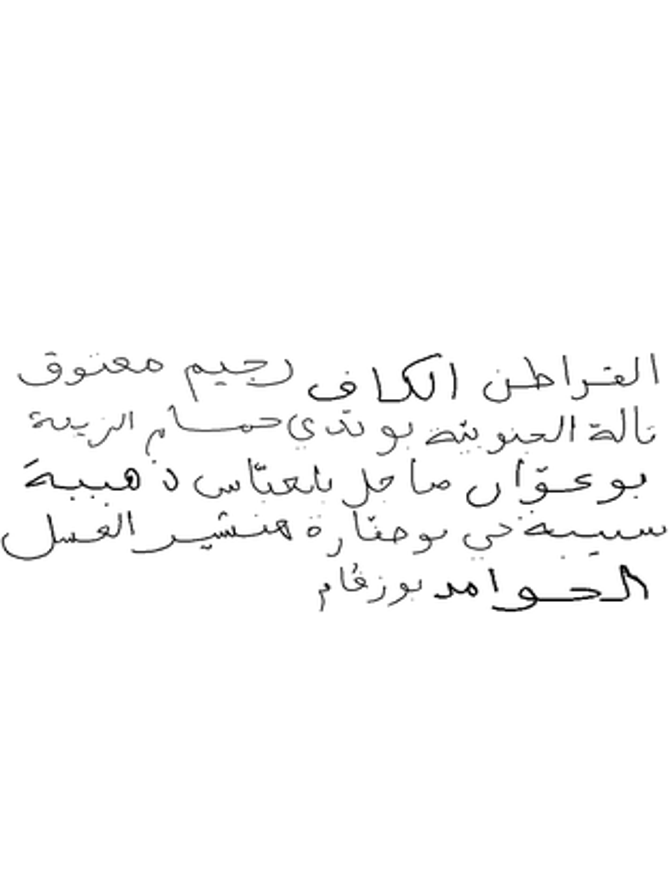 القراطن الكاف رجيم معتوق
تالة الجنوبية بو تدي حمام الزريبة
بو عوّان صاحل بلعبّاس ذهيبة
سبيبة حي بو صفّارة هنشير الغسل
الحوامد بوزڤام